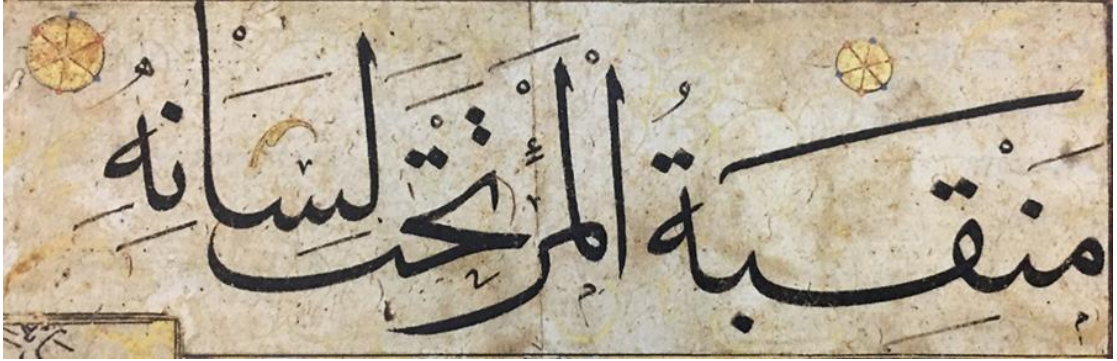 مَنْقَبَةُ الْمَرْءِ تَحْتَ لِسَانِهِ